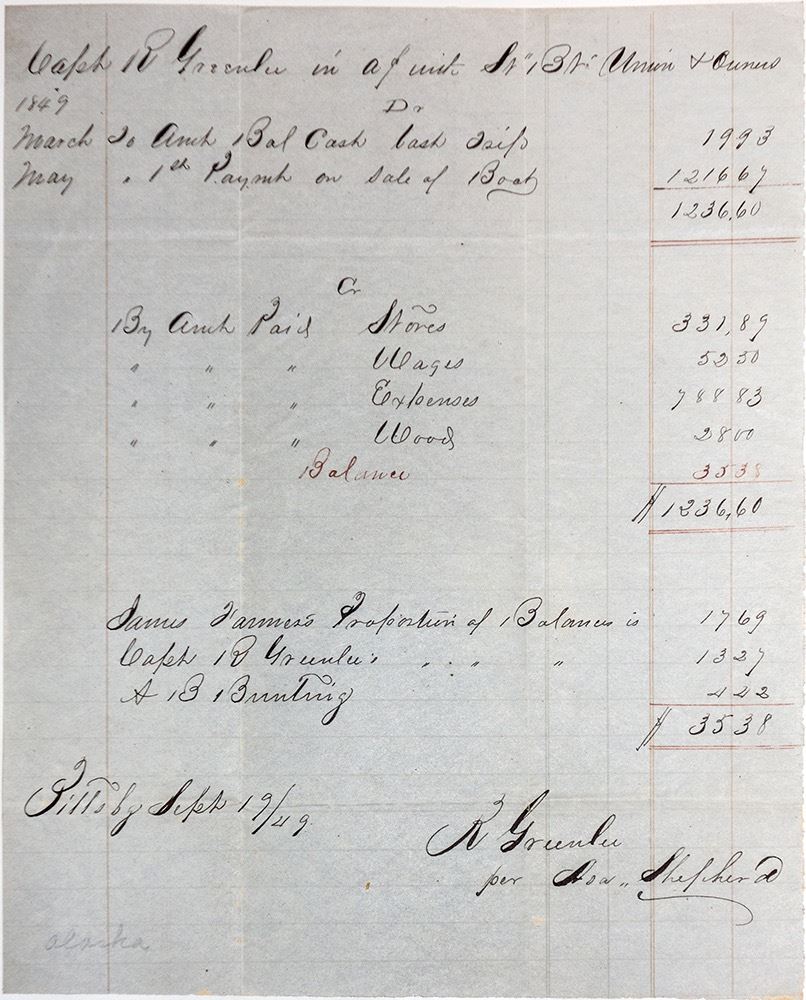 Capt R Greenlee in a/c with St" Bt" Union & Owners
1849 Dr
March To Amt Bal Cash last Trip 1993
May " 1st Paymt on sale of Boat 121667
1236,60
Cr
By Amt Paid Stores 331,89
" " " Wages 5250
" " " Expenses 78883
" " " Wood 2800
Balance 3538
$ 1236,60
James Farmers Proportion of Balance is 1769
Capt R Greenlee's " " " 1327
A B Bunting 442
$ 3538
Pittsbg Sept 19/49
R Greenlee
per Noa" Shepherd
alaska